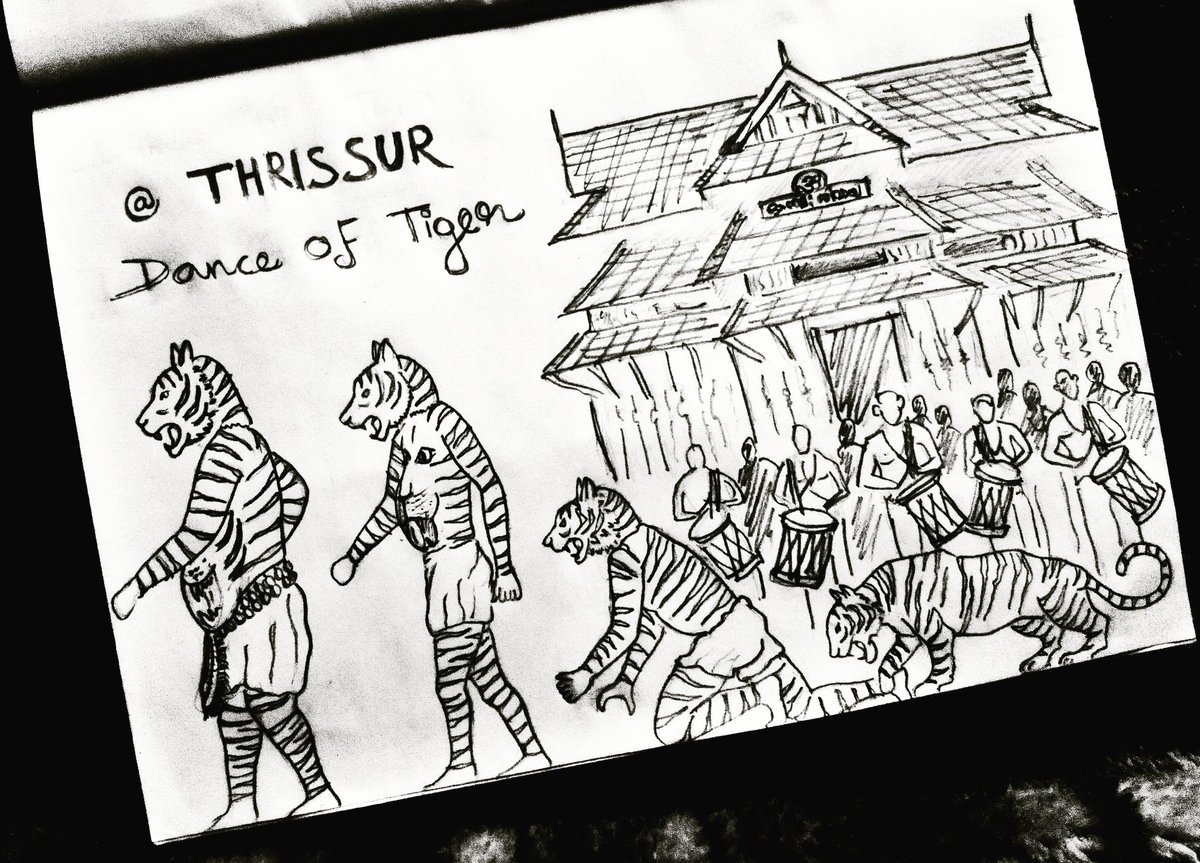 @ THRISSUR
Dance of Tiger
ॐ